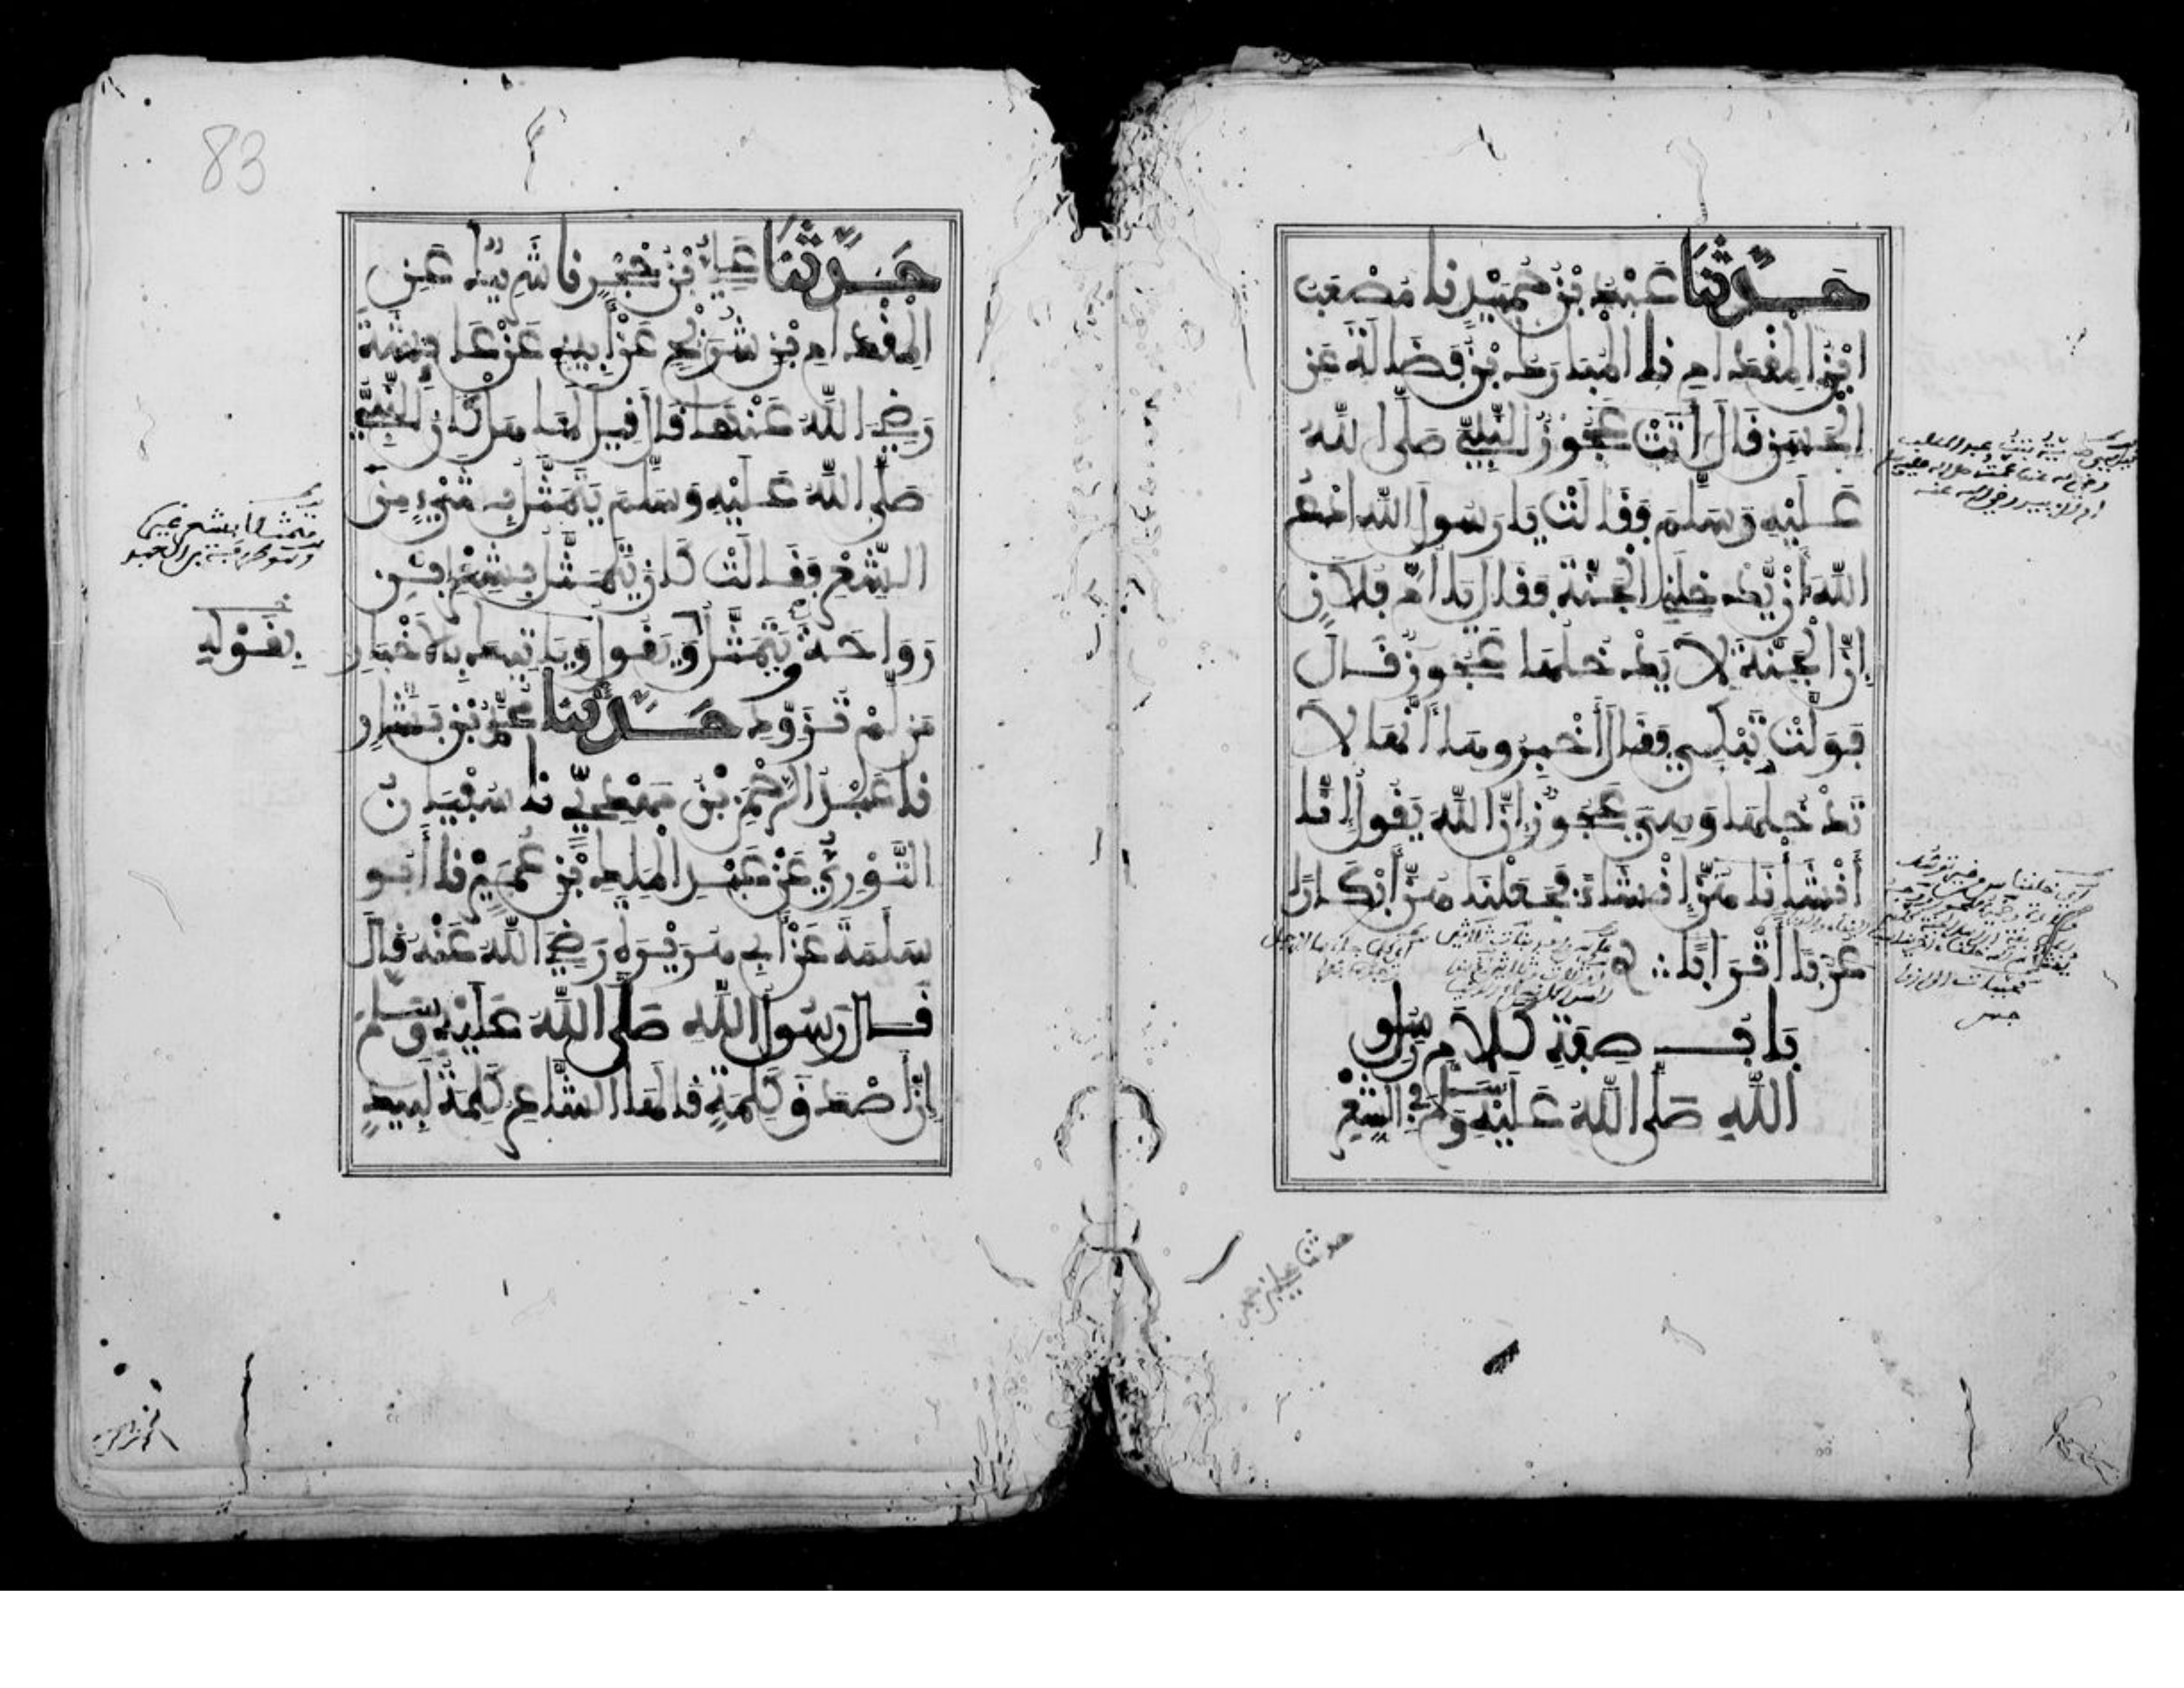 حَدَّثَنَا عَبْدُ بْنُ حُمَيْدٍ نا مُصْعَبُ
ابْنُ الْمِقْدَامِ نا الْمُبَارَكُ بْنُ فَضَالَةَ عَنِ
الْحَسَنِ قَالَ أَتَتْ عَجُوزٌ النَّبِيَّ صَلَّى اللهُ
عَلَيْهِ وَسَلَّمَ فَقَالَتْ يَا رَسُولَ اللهِ ادْعُ
اللهَ أَنْ يُّدْخِلَنِي الْجَنَّةَ فَقَالَ يَا أُمَّ فُلَانٍ
إِنَّ الْجَنَّةَ لَا يَدْخُلُهَا عَجُوزٌ قَالَ
فَوَلَّتْ تَبْكِي فَقَالَ أَخْبِرُوهَا أَنَّهَا لَا
تَدْخُلُهَا وَهِيَ عَجُوزٌ إِنَّ اللهَ يَقُولُ إِنَّا
أَنْشَأْنَاهُنَّ إِنْشَاءً فَجَعَلْنَاهُنَّ أَبْكَارًا
عُرُبًا أَتْرَابًا
بَابُ صِفَةِ كَلَامِ رَسُولِ
اللهِ صَلَّى اللهُ عَلَيْهِ وَسَلَّمَ فِي الشِّعْرِ
حدثنا علي بن حجر
83
حَدَّثَنَا عَلِيُّ بْنُ حُجْرٍ نا شَرِيكٌ عَنِ
الْمِقْدَامِ بْنِ شُرَيْحٍ عَنْ أَبِيهِ عَنْ عَائِشَةَ
رَضِيَ اللهُ عَنْهَا قَالَ قِيلَ لَهَا هَلْ كَانَ النَّبِيُّ
صَلَّى اللهُ عَلَيْهِ وَسَلَّمَ يَتَمَثَّلُ بِشَيْءٍ مِنَ
الشِّعْرِ فَقَالَتْ كَانَ يَتَمَثَّلُ بِشِعْرِ ابْنِ
رَوَاحَةَ وَيَتَمَثَّلُ وَيَقُولُ وَيَأْتِيكَ بِالْأَخْبَارِ
بِقَوْلِهِ
مَن لَّمْ تُزَوِّدِ حَدَّثَنَا مُحَمَّدُ بْنُ بَشَّارٍ
نا عَبْدُ الرَّحْمَنِ بْنُ مَهْدِيٍّ نا سُفْيَانُ
الثَّوْرِيُّ عَنْ عَبْدِ الْمَلِكِ بْنِ عُمَيْرٍ نا أَبُو
سَلَمَةَ عَنْ أَبِي هُرَيْرَةَ رَضِيَ اللهُ عَنْهُ قَالَ
قَالَ رَسُولُ اللهِ صَلَّى اللهُ عَلَيْهِ وَسَلَّمَ
إِنَّ أَصْدَقَ كَلِمَةٍ قَالَهَا الشَّاعِرُ كَلِمَةُ لَبِيدٍ